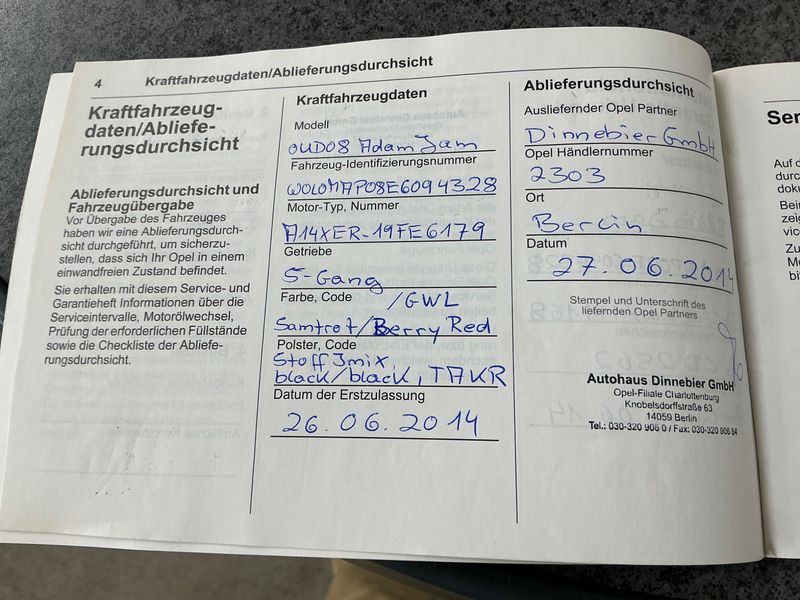 4 Kraftfahrzeugdaten/Ablieferungsdurchsicht
Kraftfahrzeug-
daten/Abliefe-
rungsdurchsicht
Ablieferungsdurchsicht und
Fahrzeugübergabe
Vor Übergabe des Fahrzeuges
haben wir eine Ablieferungsdurch-
sicht durchgeführt, um sicherzu-
stellen, dass sich Ihr Opel in einem
einwandfreien Zustand befindet.
Sie erhalten mit diesem Service- und
Garantieheft Informationen über die
Serviceintervalle, Motorölwechsel,
Prüfung der erforderlichen Füllstände
sowie die Checkliste der Abliefe-
rungsdurchsicht.
Kraftfahrzeugdaten
Modell
0UD08 Adam Jam
Fahrzeug-Identifizierungsnummer
W0L0MAP08E6094328
Motor-Typ, Nummer
A14XER-19FE6179
Getriebe
5-Gang
Farbe, Code /GWL
Samtrot/Berry Red
Polster, Code
Stoff Jmix,
black/black, TAKR
Datum der Erstzulassung
26.06.2014
Ablieferungsdurchsicht
Ausliefernder Opel Partner
Dinnebier GmbH
Opel Händlernummer
2303
Ort
Berlin
Datum
27.06.2014
Stempel und Unterschrift des
liefernden Opel Partners
Autohaus Dinnebier GmbH
Opel-Filiale Charlottenburg
Knobelsdorffstraße 63
14059 Berlin
Tel.: 030-320 906 0 / Fax: 030-320 906 84
Ser
Auf d
dokum
Bein
zeic
vice
Zu
Me
bit